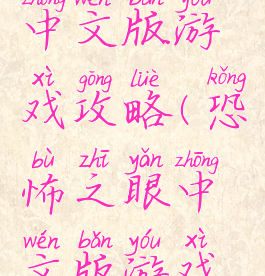 zhōng wén bǎn yóu
中文版游
xì gōng lüè kǒng
戏攻略(恐
bù zhī yǎn zhōng
怖之眼中
wén bǎn yóu xì
文版游戏